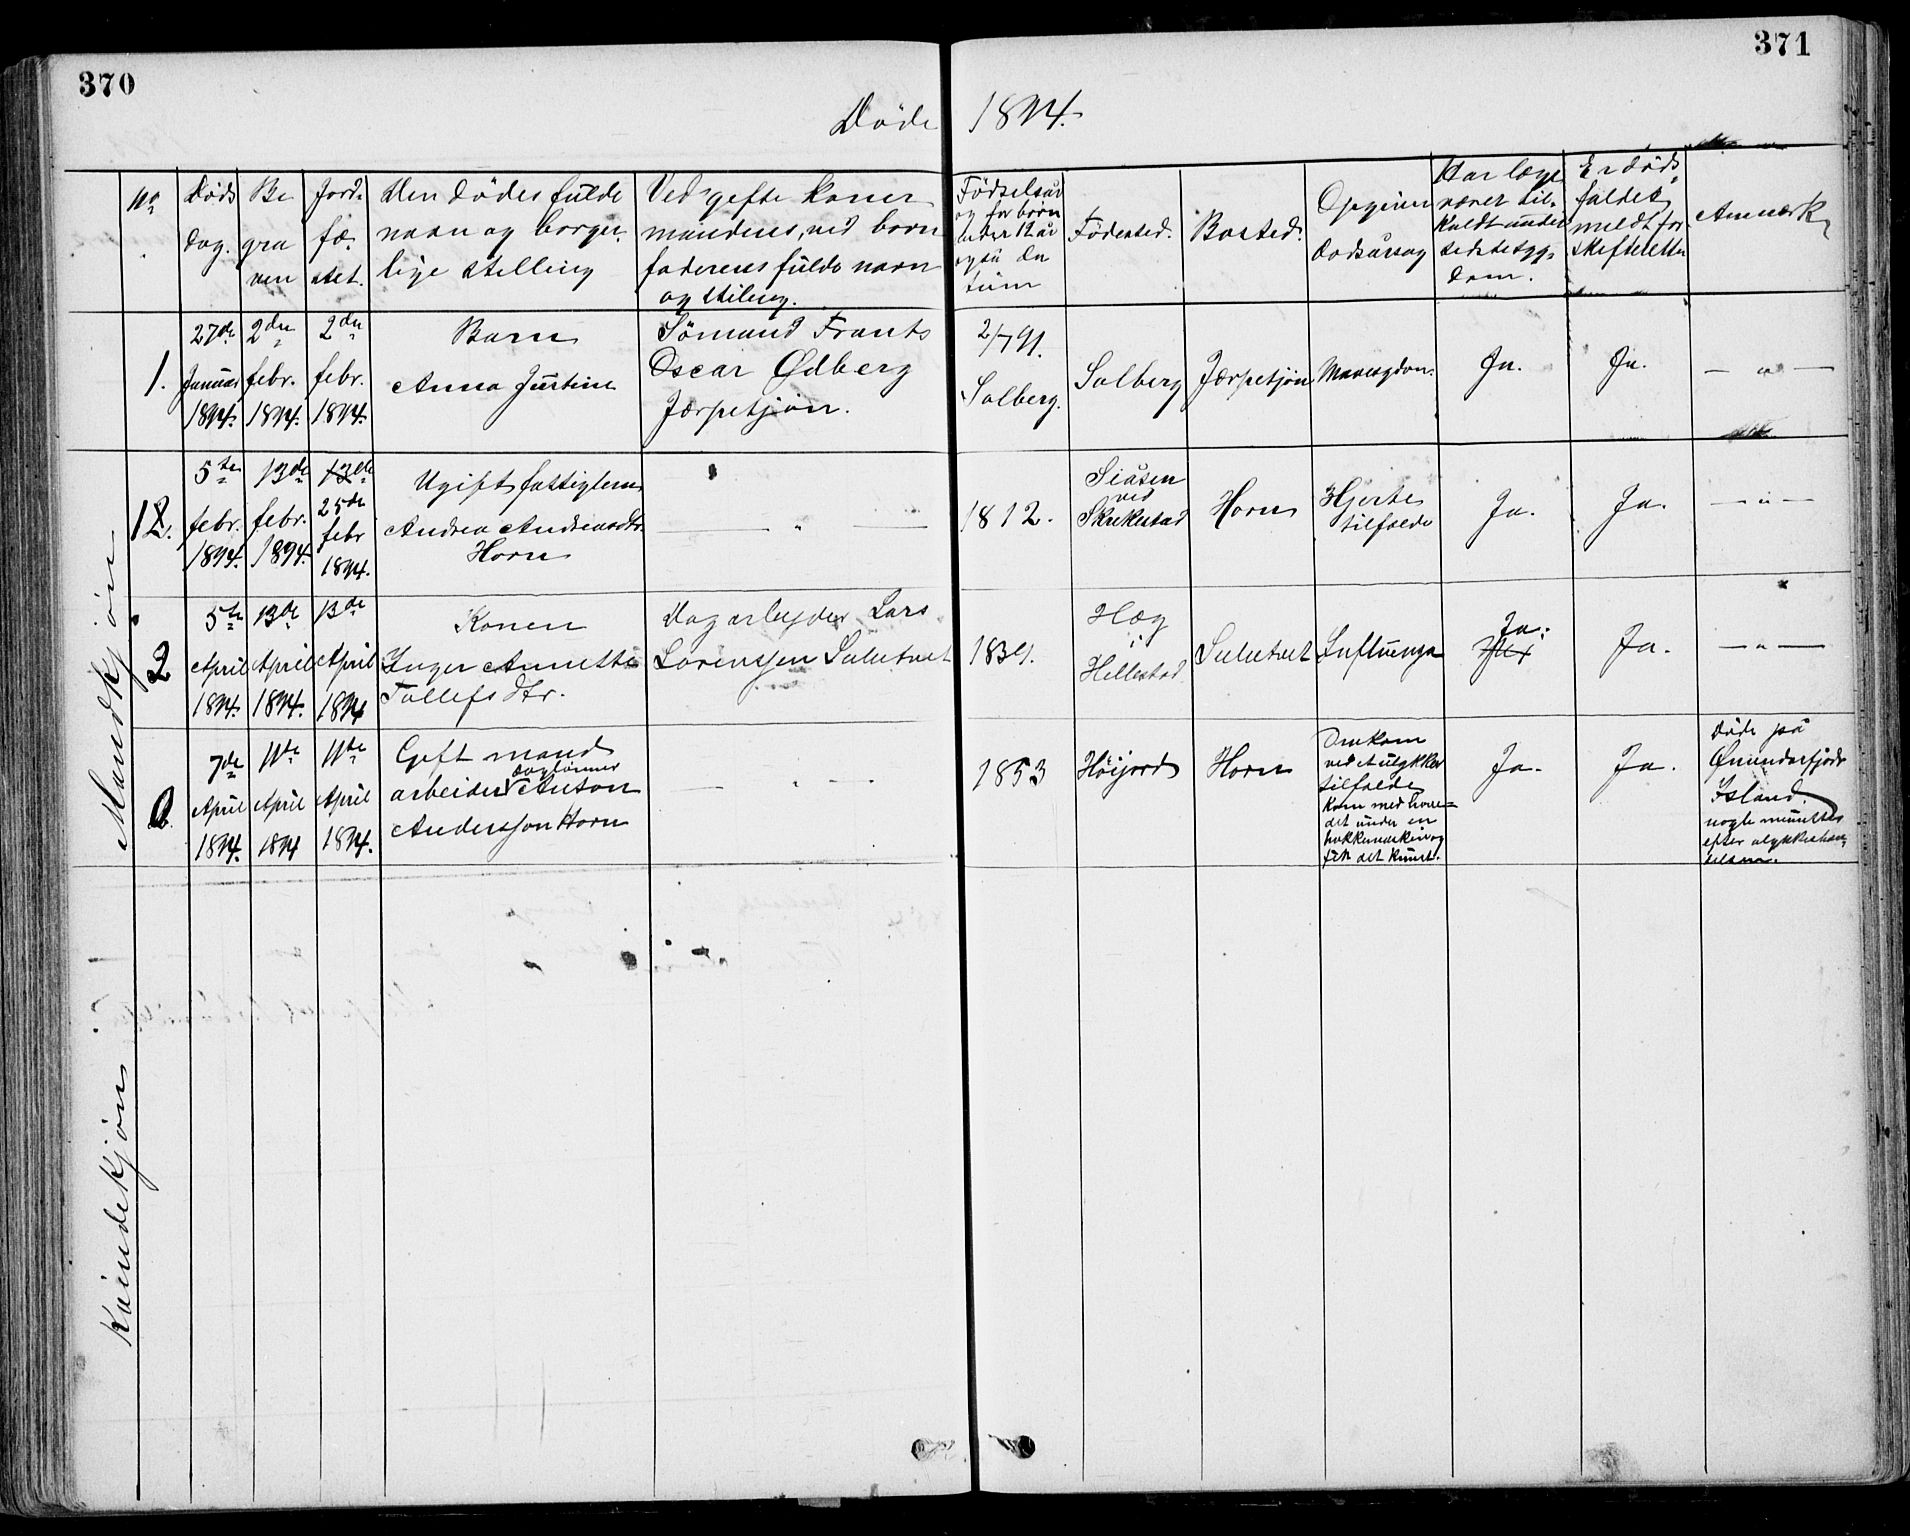 370
371
Døde 1894.
No.
Døds
dag.
Be
gra
ven
Jord-
fæ-
stet.
Den dødes fulde
navn og borger-
lige stilling
Ved gifte koner
mandens, ved børn
faderens fulde navn
og stiling.
Fødselsår
og for børn
under 12 år
også da
tum
Fødested.
Bosted.
Opgiven
dødsårsag
Har læge
været til-
kaldt under
sidste syg-
dom.
Er døds-
faldet
meldt for
skifteretten
Anmærk
1.
27de
Januar
1894.
2den
febr.
1894.
2den
febr.
1894.
Barn
Anna Justine
Sømand Frants
Oscar Ødberg
Jærpetjøn.
2/7 91.
Solberg.
Solberg
Jærpetjøn
Ja.
Ja.
— " —
12.
5te
febr.
1894.
13de
febr.
1894.
13de
25de
febr
1894.
Ugift fattiglem
Andrea Andreasdtr.
Horn
— " —
1812.
Siåsen
ved
Skrikestad
Horn
Hjerte
tilfælde
Ja.
Ja.
— " —
2
5te
April
1894.
13de
April
1894.
13de
April
1894
Konen
Inger Annette
Tollefsdtr.
Dagarbejder Lars
Lorenssen Sulutvet
1839.
Hæg
i
Hillestad
Sulutvet
Influenga
Ja.
Ja.
— " —
7de
April
1894.
11te
April
1894
11te
April
1894.
Gift mand
daglønner
arbeider Anton
Anderssøn Horn
— " —
1853
Høijord
Horn
Omkom
ved et ulykkes
tilfælde
kom med hove-
det under en
hakkemaskin og
fik det knust.
Ja.
Ja.
Døde på
Ønundarfjödr
Island.
nogle minutter
efter ulykkeshæn-
delsen.
Mandkjøn
Kvindekjøn